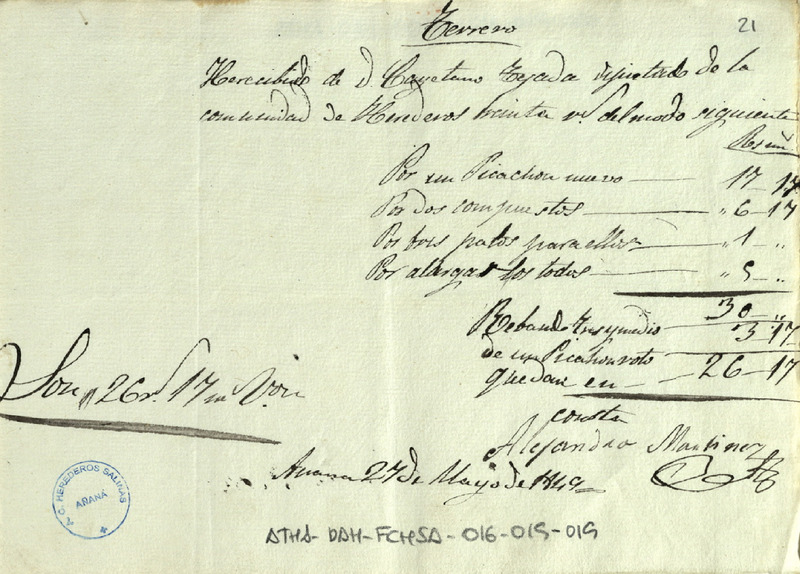 21
Herrero
He recibido de d. Cayetano Tejada diputado de la
comunidad de Herederos treinta rs. del modo siguiente
Rs mrs
Por un Picachon nuevo — 17 — 17
Por dos compuestos — " 6 — 17
Por tres palos para ellos — " 1 — "
Por alargar los todos — " 5 — "
30 — "
Rebando tres y medio — 3 — 17
de un Picachon roto
quedan en — 26 — 17
Son 26 rs. 17 ms Von
consta
Alejandro Martinez
Anana 27 de Mayo de 1849
A. C. HEREDEROS SALINAS
AÑANÁ
ATHA-DAH-FCHSA-016-015-019